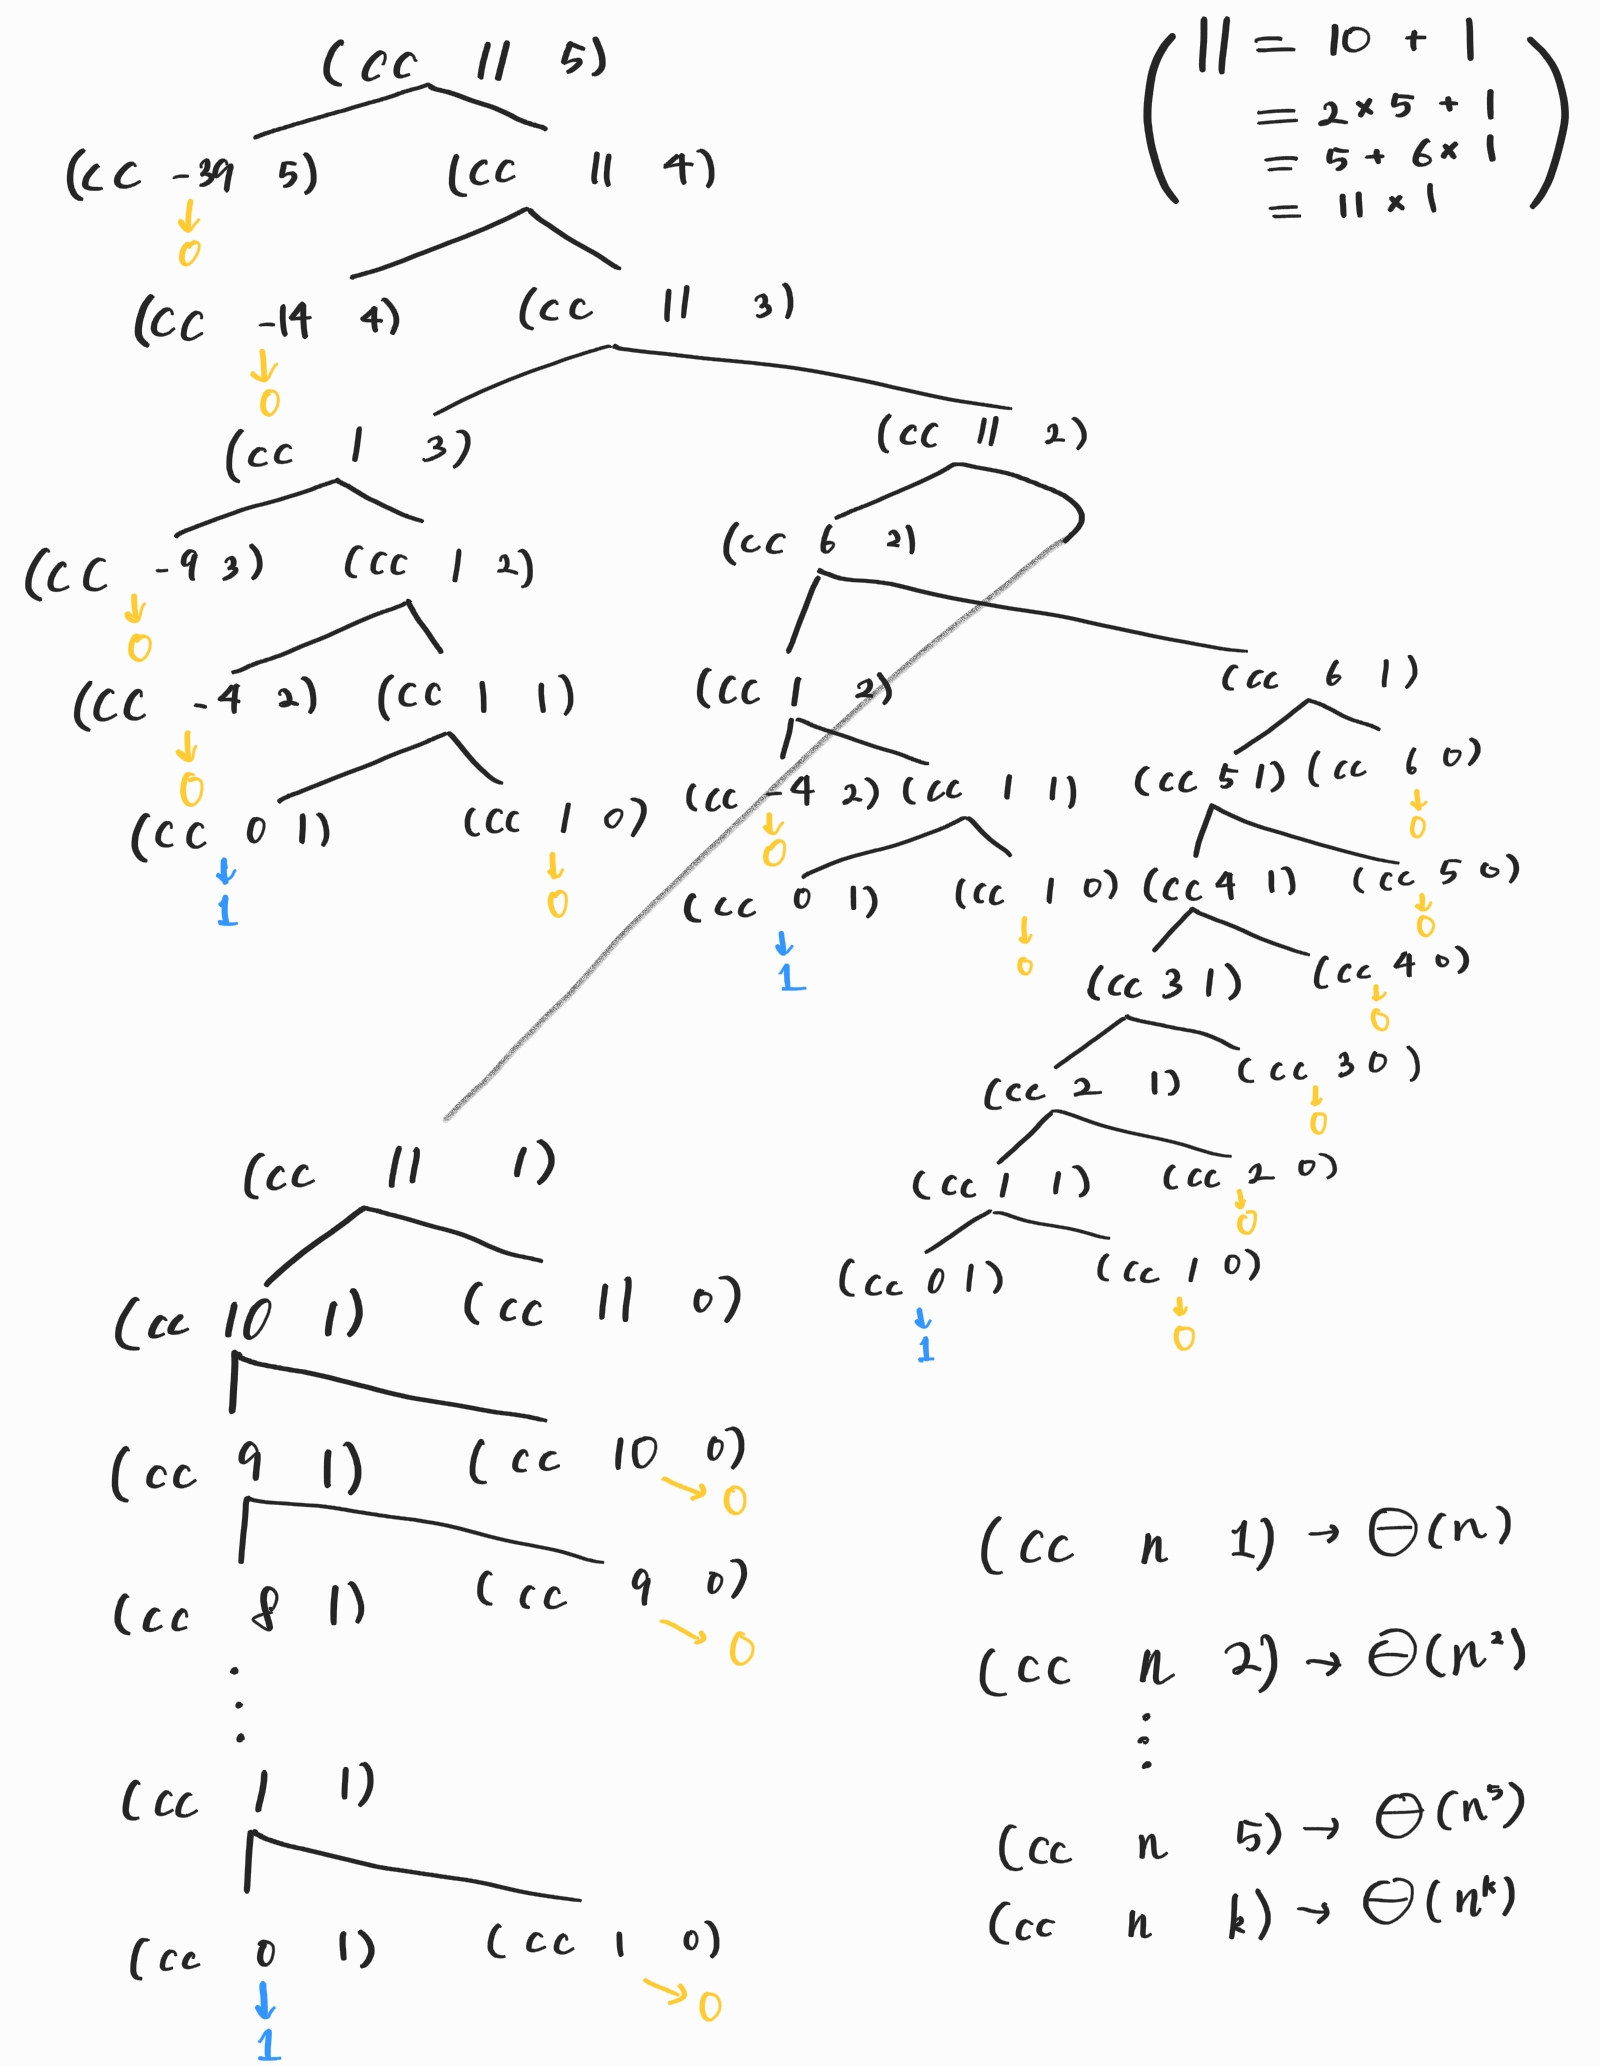 (cc 11 5)
11 = 10 + 1
= 2 × 5 + 1
= 5 + 6 × 1
= 11 × 1
(cc -39 5) (cc 11 4)
0
(cc -14 4) (cc 11 3)
0
(cc 1 3) (cc 11 2)
(cc -9 3) (cc 1 2) (cc 6 2)
0
(cc -4 2) (cc 1 1) (cc 1 2) (cc 6 1)
0
(cc 0 1) (cc 1 0) (cc -4 2) (cc 1 1) (cc 5 1) (cc 6 0)
1 0 0 0
(cc 0 1) (cc 1 0) (cc 4 1) (cc 5 0)
1 0 0
(cc 3 1) (cc 4 0)
0
(cc 2 1) (cc 3 0)
0
(cc 11 1) (cc 1 1) (cc 2 0)
0
(cc 10 1) (cc 11 0) (cc 0 1) (cc 1 0)
1 0
(cc 9 1) (cc 10 0)
0
(cc 8 1) (cc 9 0)
0
(cc 1 1)
(cc 0 1) (cc 1 0)
1 0
(cc n 1) → Θ(n)
(cc n 2) → Θ(n²)
(cc n 5) → Θ(n⁵)
(cc n k) → Θ(nᵏ)